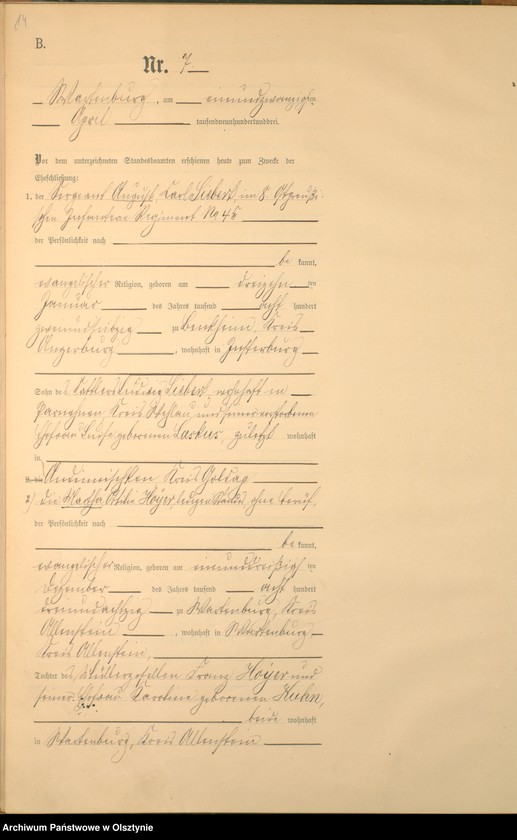 14
B.
Nr. 7
Wartenburg, am einundzwanzigsten
April tausendneunhundertunddrei.
Vor dem unterzeichneten Standesbeamten erschienen heute zum Zwecke der
Eheschließung:
1. der Sergeant August Carl Siebert, im 8. Ostpreußi-
schen Infanterie Regiment No 45
der Persönlichkeit nach
be kannt,
evangelischer Religion, geboren am dreizehn ten
Januar des Jahres tausend acht hundert
zu Benkheim, Kreis
Angerburg, wohnhaft in Insterburg
Sohn des Sattlers Ludwig Siebert, wohnhaft in
Kreis Wehlau, und seiner verstorbenen
Ehefrau Luise geborenen Laskus, zuletzt wohnhaft
in
Kreis Goldap
2) die Martha Ottilie Hoyer, ledigen Standes, ohne Beruf,
der Persönlichkeit nach
be kannt,
evangelischer Religion, geboren am einunddreißigs ten
Dezember des Jahres tausend acht hundert
dreiundachtzig zu Wartenburg, Kreis
Allenstein, wohnhaft in Wartenburg
Kreis Allenstein,
Tochter des Müllergesellen Franz Hoyer und
seiner Ehefrau Caroline geborenen Kuhn,
beide wohnhaft
in Wartenburg, Kreis Allenstein
Archiwum Państwowe w Olsztynie